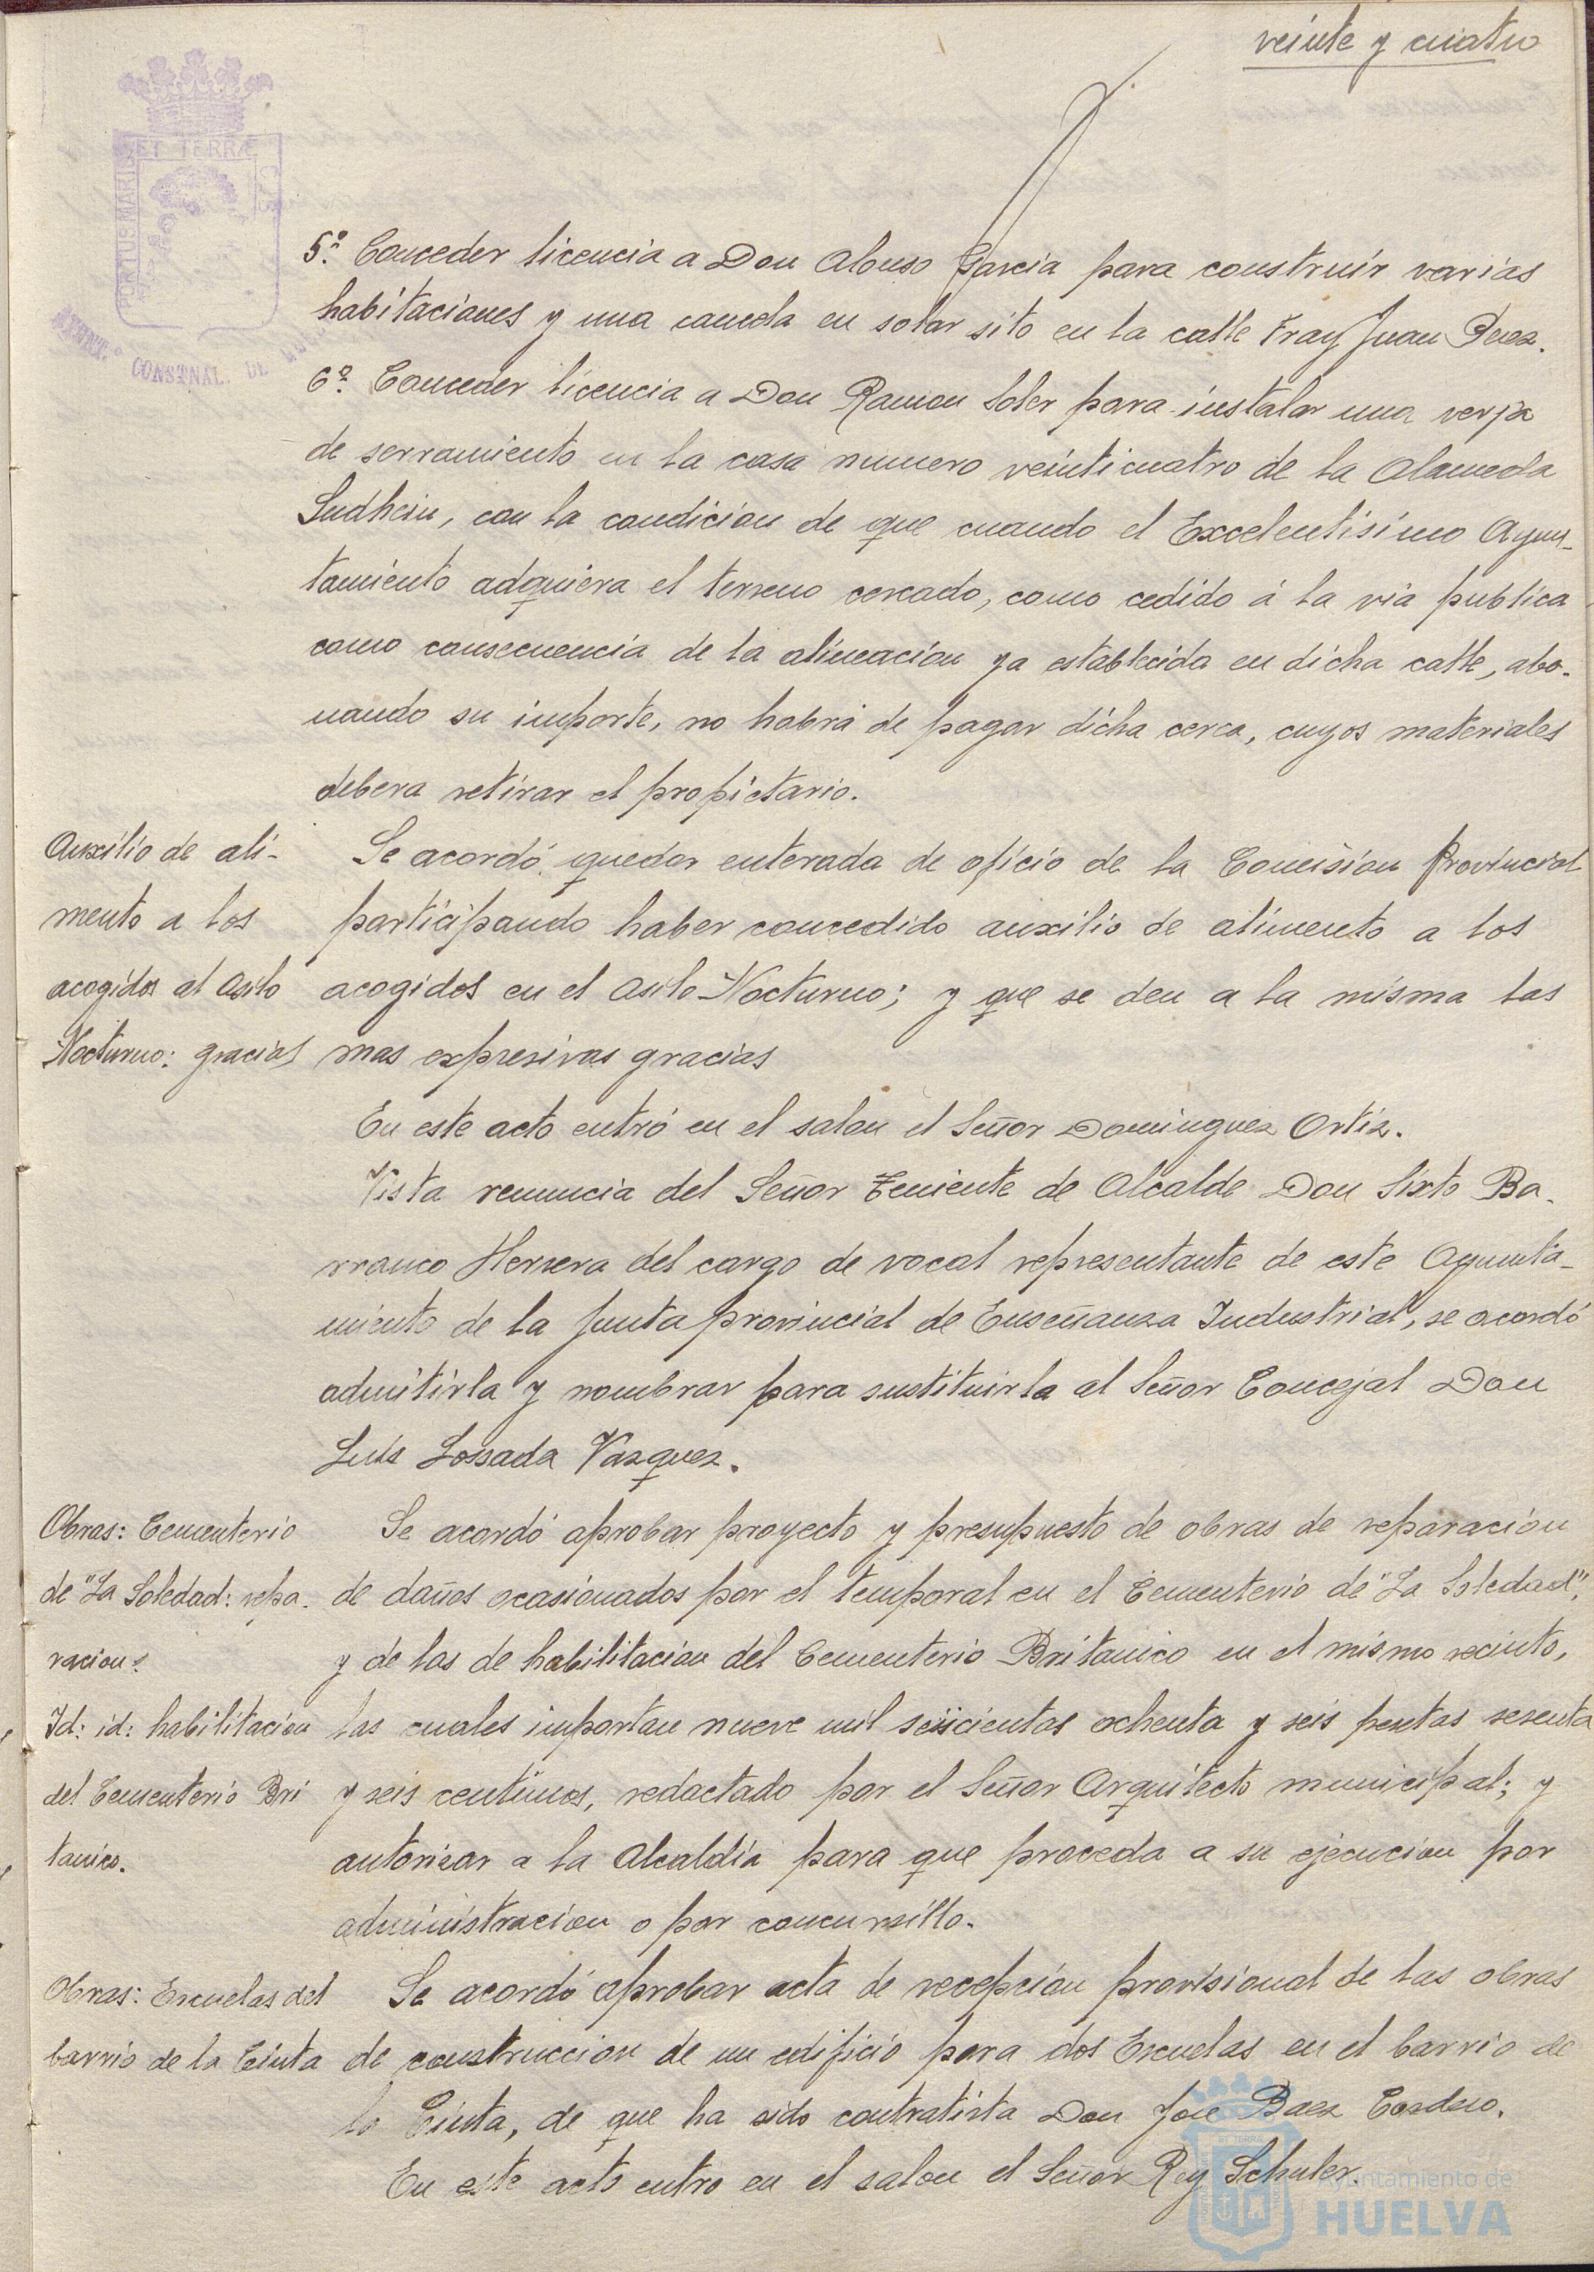 veinte y cuatro
ET TERRÆ
PORTUS MARIS
CUS
AYUNT.º CONSTNAL. DE
5º. Conceder licencia a Don Alonso Garcia para construir varias
habitaciones y una cancela en solar sito en la calle Fray Juan Perez.
6º. Conceder licencia a Don Ramon Soler para instalar una verja
de serramiento en la casa numero veinticuatro de la Alameda
Sudhein, con la condicion de que cuando el Excelentisimo Ayun-
tamiento adquiera el terreno cercado, como cedido á la via publica
como consecuencia de la alineacion ya establecida en dicha calle, abo-
nando su importe, no habrá de pagar dicha cerca, cuyos materiales
debera retirar el propietario.
Auxilio de ali-
mento a los
acogidos al Asilo
Nocturno: gracias
Se acordó quedar enterada de oficio de la Comision Provincial
participando haber concedido auxilio de alimento a los
acogidos en el Asilo Nocturno; y que se den a la misma las
mas expresivas gracias
En este acto entró en el salon el Señor Dominguez Ortiz.
Vista renuncia del Señor Teniente de Alcalde Don Sixto Ba-
rranco Herrera del cargo de vocal representante de este Ayunta-
miento de la Junta provincial de Enseñanza Industrial, se acordó
admitirla y nombrar para sustituirla al Señor Concejal Don
Luis Lossada Vazquez.
Obras: Cementerio
de "La Soledad: repa-
racion:
Id: id: habilitacion
del Cementerio Bri
tanico.
Se acordó aprobar proyecto y presupuesto de obras de reparacion
de daños ocasionados por el temporal en el Cementerio de "La Soledad",
y de las de habilitacion del Cementerio Britanico en el mismo recinto,
las cuales importan nueve mil seiscientas ochenta y seis pesetas sesenta
y seis centimos, redactado por el Señor Arquitecto municipal; y
autorizar a la Alcaldía para que proceda a su ejecucion por
administracion o por concursillo.
Obras: Escuelas del
barrio de la Cinta
Se acordó aprobar acta de recepción provisional de las obras
de construccion de un edificio para dos Escuelas en el barrio de
la Cinta, de que ha sido contratista Don Jose Baez Cordero.
En este acto entro en el salon el Señor Rey Schuler.
Ayuntamiento de
HUELVA